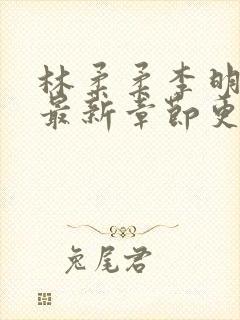 林柔柔李明
最新章节更
兔尾君